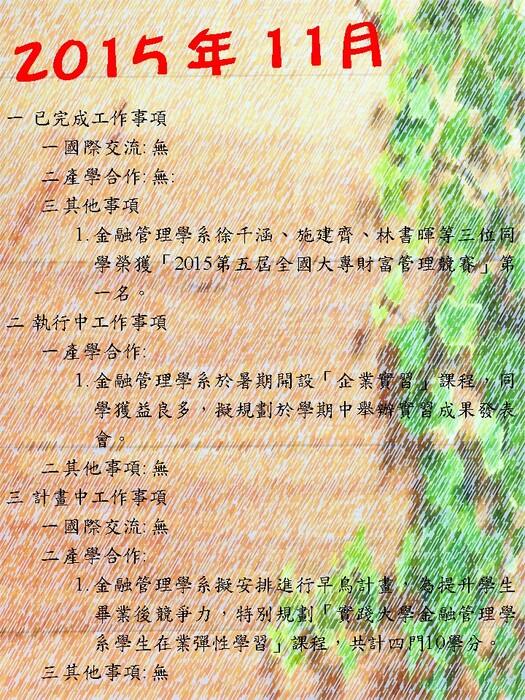 2015年11月
一 已完成工作事項
一國際交流: 無
二產學合作: 無:
三其他事項
1. 金融管理學系徐千涵、施建齊、林書暉等三位同
學榮獲「2015第五屆全國大專財富管理競賽」第
一名。
二 執行中工作事項
一產學合作:
1. 金融管理學系於暑期開設「企業實習」課程，同
學獲益良多，擬規劃於學期中舉辦實習成果發表
會。
二其他事項: 無
三 計畫中工作事項
一國際交流: 無
二產學合作:
1. 金融管理學系擬安排進行早鳥計畫，為提升學生
畢業後競爭力，特別規劃「實踐大學金融管理學
系學生在業彈性學習」課程，共計四門10學分。
三其他事項: 無